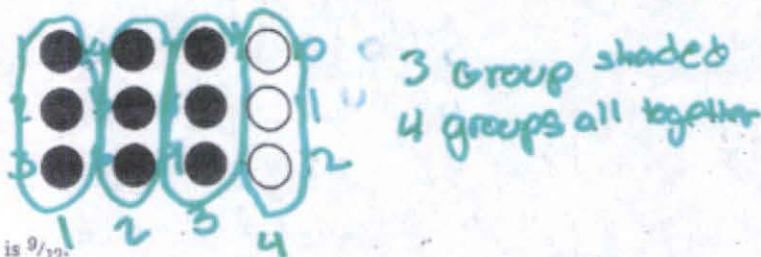 3 Group shaded
4 groups all together
2
3
10
11
12
1 2 3 4
is 9/12.